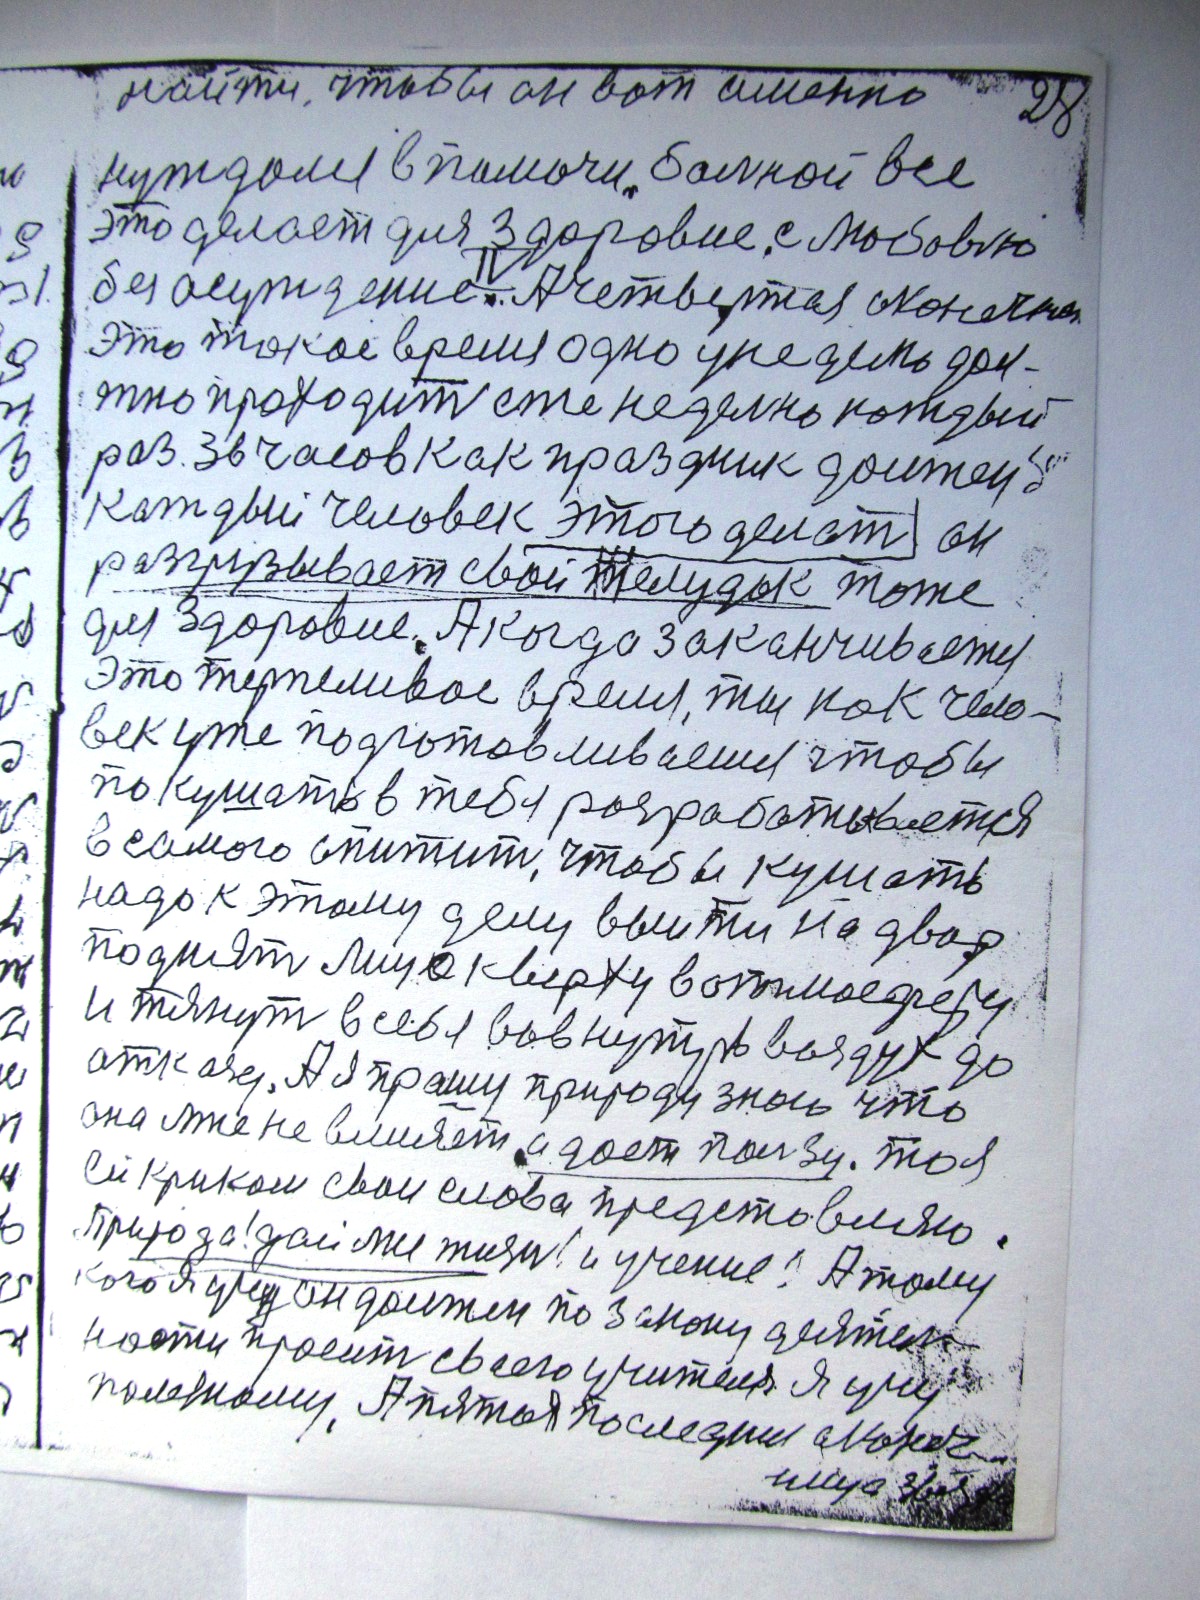 найти, чтобы он вот именно 28
нуждался в помочи. балной все
это делает для Здоровие, с Любовлю
без асуждение. IV А четвертая
это такое время одно у неделю дол-
жно проходит еже неделно каждый
раз. 36 часов как праздник должен
каждый человек этого делат он
разгрузывает свой Желудок тоже
для Здоровие. А когда заканчивается
Это терпеливое время, ты как чело-
век уже подготовливаеся чтобы
покушать в тебя разрабатывается
всамого апитит, чтобы кушать
надо к этому делу выйти на двор
поднят Лицо кверху ватмосферу
и тянут в себя вовнутрь воздух до
отказу. А я прашу природу знаю что
она мне не влияет, а дает ползу. то я
ей криком свои слова представляю.
Природа! дай мне жизн! и учение! А тому
кого я учу он должен по закону деятел-
ности просит своего учителя я учу
полезному. А пятая последния